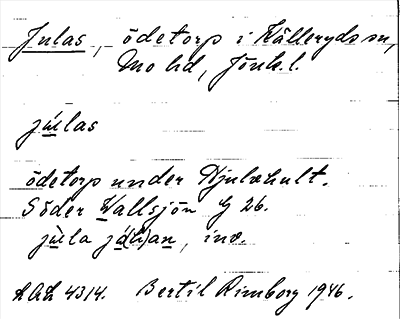 Julas, ödetorp i Kålleryds sn,
Mo hd, Jönk. l.
júlas
ödetorp under Hjulahult.
Söder Vallsjön G 26.
jùla já(h)an, inv.
LAL 4314. Bertil Rimborg 1946.